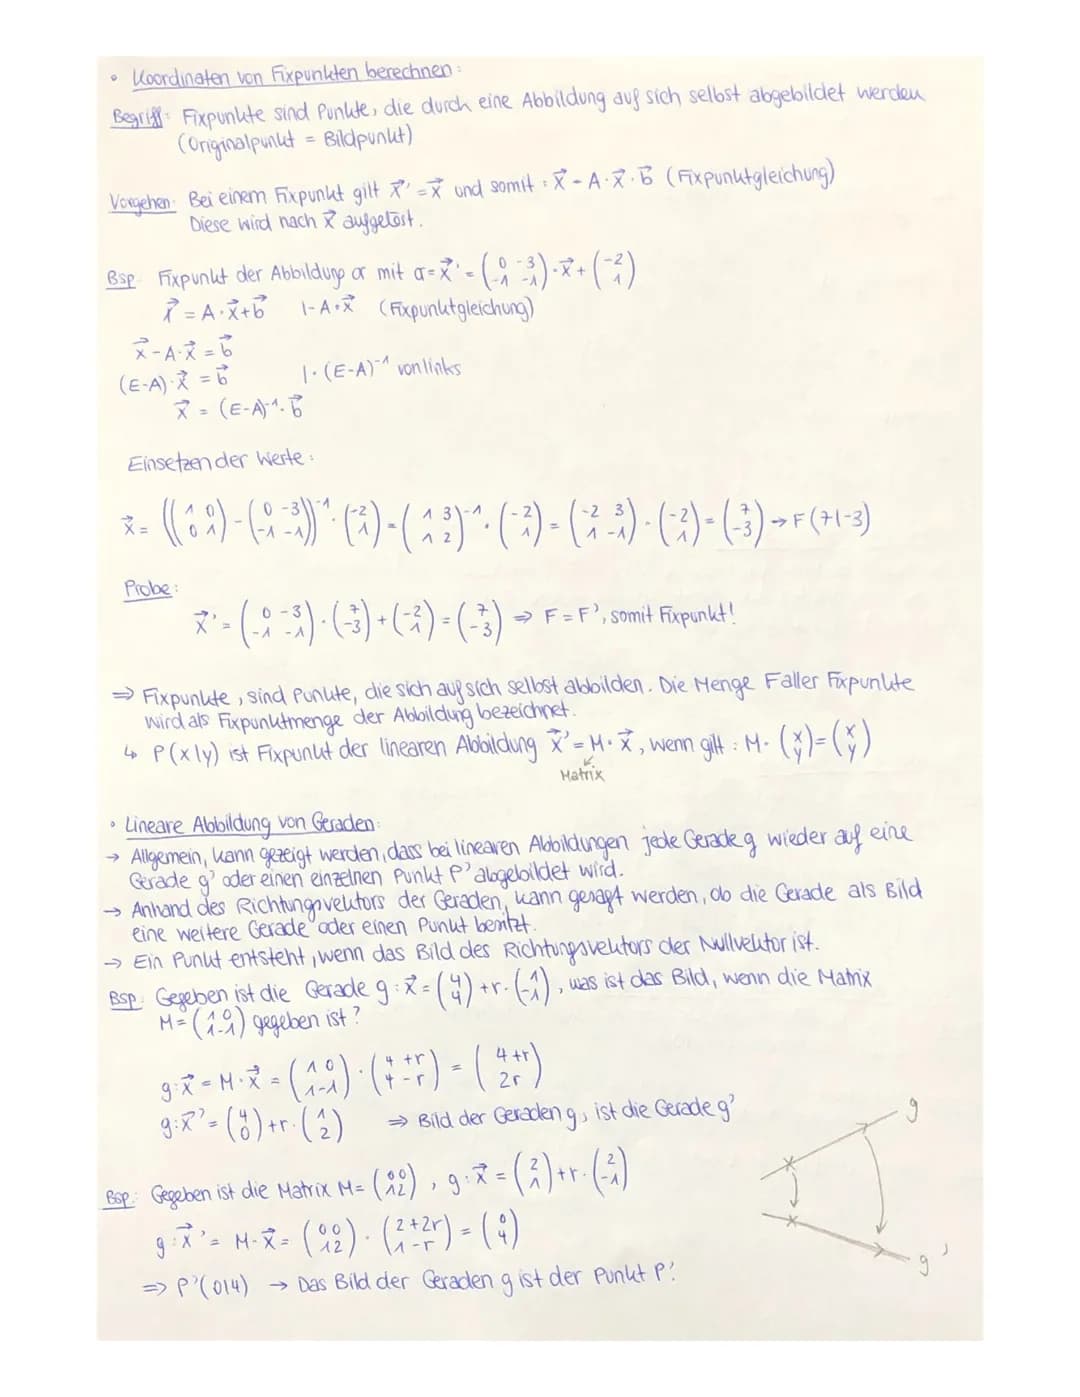 • Koordinaten von Fixpunkten berechnen:
Begriff: Fixpunkte sind Punkte, die durch eine Abbildung auf sich selbst abgebildet werden
(Originalpunkt = Bildpunkt)
Vorgehen: Bei einem Fixpunkt gilt x⃗' = x⃗ und somit: x⃗ - A·x⃗·b⃗ (Fixpunktgleichung)
Diese wird nach x⃗ aufgelöst.
Bsp. Fixpunkt der Abbildung α mit α = x⃗' = (0 -3; -1 -1)·x⃗ + (-2; 1)
x⃗ = A·x⃗+b⃗ |-A·x⃗ (Fixpunktgleichung)
x⃗ - A·x⃗ = b⃗
(E-A)·x⃗ = b⃗ |·(E-A)⁻¹ von links
x⃗ = (E-A)⁻¹·b⃗
Einsetzen der Werte:
x⃗ = ((1 0; 0 1) - (0 -3; -1 -1))⁻¹·(-2; 1) = (1 3; 1 2)⁻¹·(-2; 1) = (-2 3; 1 -1)·(-2; 1) = (7; -3) → F(7|-3)
Probe:
x⃗' = (0 -3; -1 -1)·(7; -3) + (-2; 1) = (7; -3) ⇒ F = F', somit Fixpunkt!
⇒ Fixpunkte, sind Punkte, die sich auf sich selbst abbilden. Die Menge F aller Fixpunkte
wird als Fixpunktmenge der Abbildung bezeichnet.
↳ P(x|y) ist Fixpunkt der linearen Abbildung x⃗' = M·x⃗, wenn gilt: M·(x; y) = (x; y)
Matrix
• Lineare Abbildung von Geraden:
→ Allgemein, kann gezeigt werden, dass bei linearen Abbildungen jede Gerade g wieder auf eine
Gerade g' oder einen einzelnen Punkt P' abgebildet wird.
→ Anhand des Richtungsvektors der Geraden, kann gesagt werden, ob die Gerade als Bild
eine weitere Gerade oder einen Punkt besitzt.
→ Ein Punkt entsteht, wenn das Bild des Richtungsvektors der Nullvektor ist.
Bsp: Gegeben ist die Gerade g: x⃗ = (4; 4) + r·(1; -1), was ist das Bild, wenn die Matrix
M = (1 0; 1 -1) gegeben ist?
g: x⃗ = M·x⃗ = (1 0; 1 -1)·(4 +r; 4 -r) = (4+r; 2r)
g: x⃗' = (4; 0) + r·(1; 2) ⇒ Bild der Geraden g, ist die Gerade g'
g
Bsp.: Gegeben ist die Matrix M = (0 0; 1 2), g: x⃗ = (2; 1) + r·(2; -1)
g: x⃗' = M·x⃗ = (0 0; 1 2)·(2+2r; 1-r) = (0; 4)
g'
⇒ P'(0|4) → Das Bild der Geraden g ist der Punkt P'.